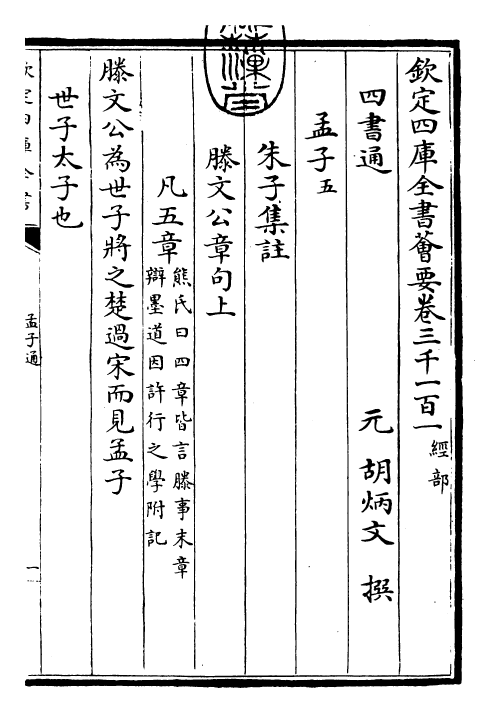 欽定四庫全書薈要卷三千一百一 經部
四書通 元 胡炳文 撰
孟子五
朱子集註
滕文公章句上
凡五章 熊氏曰四章皆言滕事末章
辯墨道因許行之學附記
滕文公為世子將之楚過宋而見孟子
世子太子也
欽定四庫全書
孟子通
一